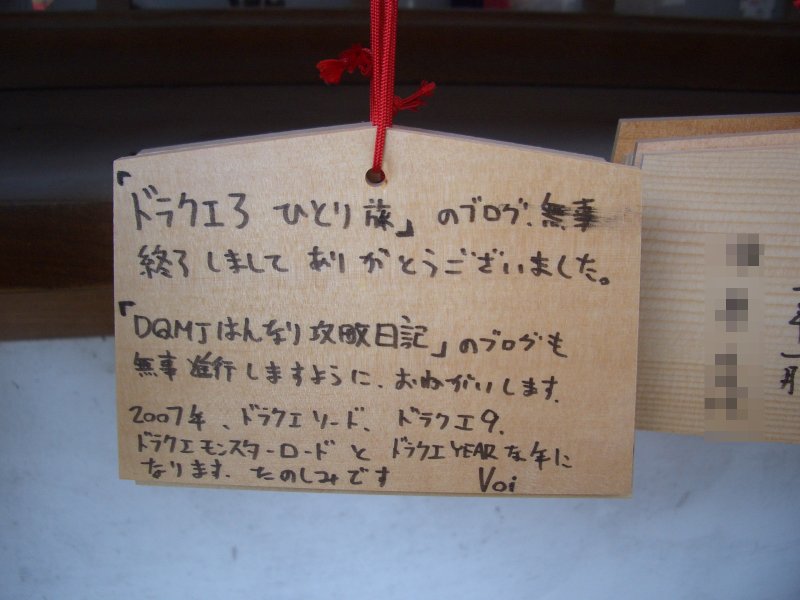 「ドラクエ3 ひとり旅」のブログ、無事
終了しまして ありがとうございました。
「DQMJはんなり攻略日記」のブログも
無事進行しますように、おねがいします.
2007年、ドラクエソード、ドラクエ9.
ドラクエモンスターロードと ドラクエYEARな年に
なります. たのしみです Voi